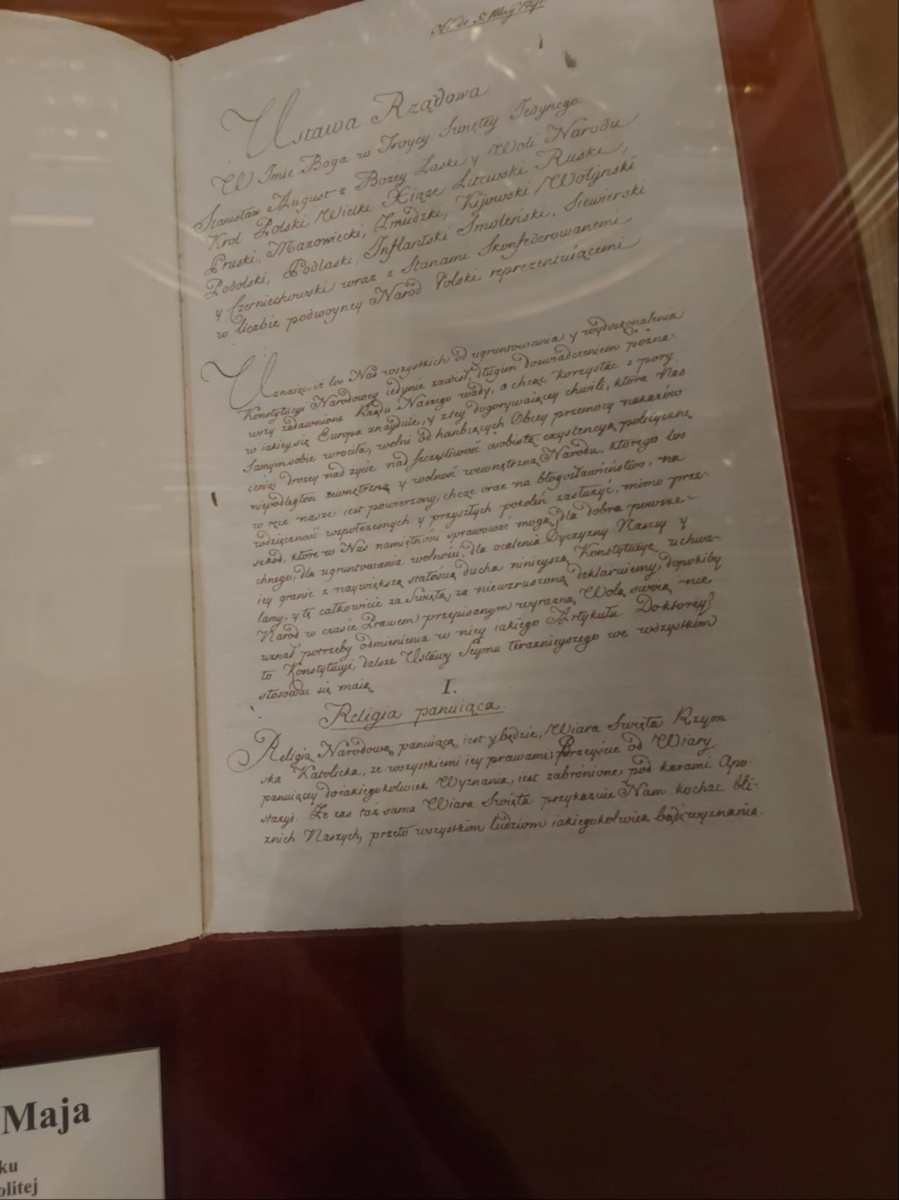 Ustawa Rządowa
W Imie Boga w Troycy Swiętey Jedynego
Stanisław August z Bożey Łaski y Woli Narodu
Krol Polski Wielki Xiąże Litewski Ruski,
Pruski, Mazowiecki, Zmudzki, Kijowski Wołyński
Podolski, Podlaski, Inflantski Smoleński, Siewierski
y Czerniechowski wraz z Stanami Skonfederowanemi
w liczbie podwoyney Narod Polski reprezentuiącemi
Uznaiąc, iż los Nas wszystkich od ugruntowania y wydoskonalenia
Konstytucyi Narodowey iedynie zawisł, długim doswiadczeniem pozna-
wszy zadawnione Rządu Naszego wady, a chcąc korzystać z pory
w iakiey się Europa znayduie, y z tey dogorywaiącey chwili, która Nas
Samym sobie wrociła, wolni od hanbiących Obcey przemocy nakazów
ceniąc drożey nad życie nad szczęśliwość osobistą exystencyą polityczną
niepodległość zewnętrzną y wolność wewnętrzną Narodu, ktorego los
w ręce nasze iest powierzony, chcąc oraz na błogosławieństwo, na
wdzięczność współczesnych y przyszłych pokoleń zasłużyć, mimo prze-
szkod, które w Nas namiętności sprawować mogą, dla dobra powsze-
chnego, dla ugruntowania wolności, dla ocalenia Oyczyzny Naszey y
iey granic z naywiększą stałością ducha ninieyszą Konstytucyę uchwa-
lamy, y tę całkowicie za Swiętą, za niewzruszoną deklaruiemy, dopokiby
Narod w czasie Prawem przepisanym wyrazną Wolą swoią nie
uznał potrzeby odmienienia w niey iakiego Artykułu Do ktorey
to Konstytucyi dalsze Ustawy Seymu teraznieyszego we wszystkim
stosować się maią
I.
Religia panuiąca.
Religią Narodową panuiącą iest y będzie, Wiara Swięta Rzym
ska Katolicka, ze wszystkiemi iey prawami, przeyscie od Wiary
panuiącey do iakiegokolwiek Wyznania, iest zabronione, pod karami Apo-
stazyi. Że zas taż sama Wiara Swięta przykazuie Nam kochac bli-
znich Naszych, przeto wszystkim ludziom iakiegokolwiek bądź wyznania.
Maja
ku
olitej